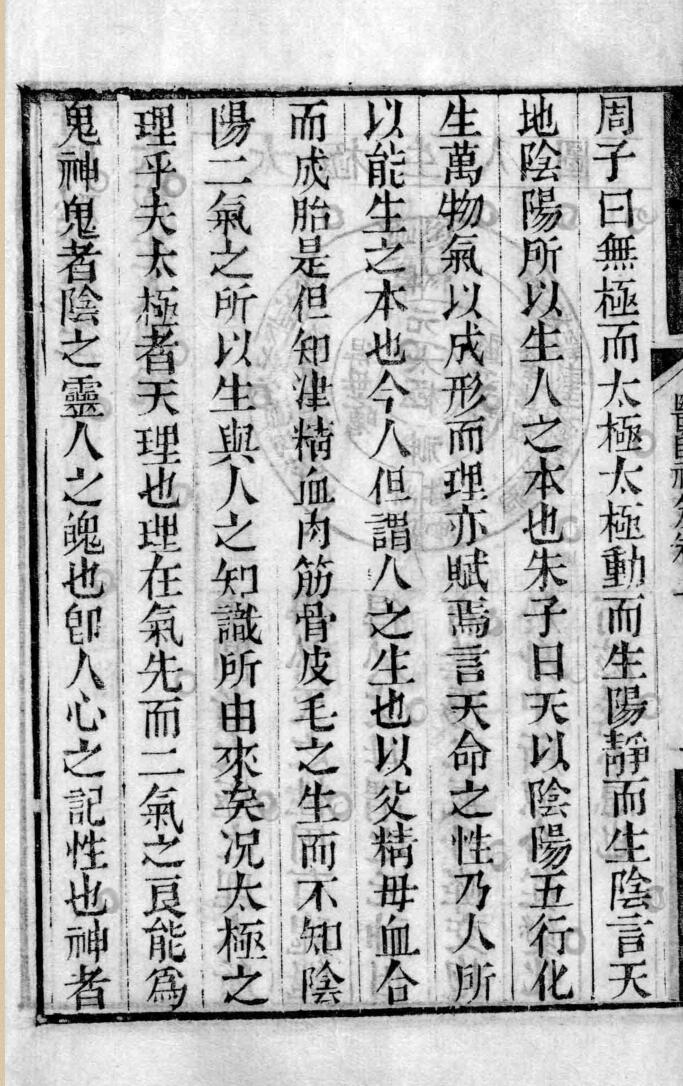 周子曰無極而太極太極動而生陽靜而生陰言天
地陰陽所以生人之本也朱子曰天以陰陽五行化
生萬物氣以成形而理亦賦焉言天命之性乃人所
以能生之本也今人但謂人之生也以父精毋血合
而成胎是但知津精血肉筋骨皮毛之生而不知陰
陽二氣之所以生與人之知識所由來矣況太極之
理乎夫太極者天理也理在氣先而二氣之良能為
鬼神鬼者陰之靈人之魄也卽人心之記性也神者